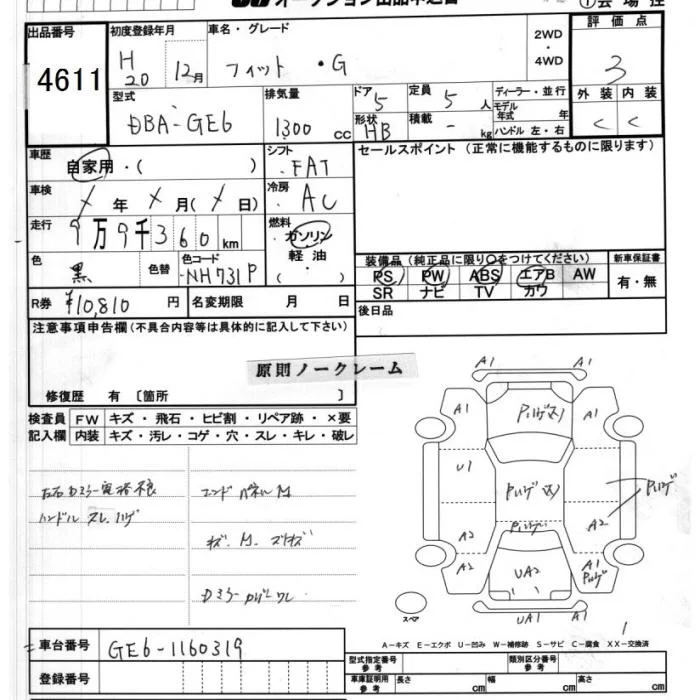 出品番号
4611
初度登録年月
H20 12月
車名・グレード
フィット ・G
2WD
・
4WD
評価点
3
型式
DBA-GE6
排気量
1300 cc
ドア 5
形状 HB
定員 5 人
積載 - kg
ディーラー・並行
モデル
年式 年
ハンドル 左・右
外装
内装
C C
車歴
自家用・( )
シフト
FAT
セールスポイント (正常に機能するものに限ります)
車検
年 月( 日)
冷房
AC
走行
9万9千360km
燃料
ガソリン
軽油
・( )
色
黒
色替
色コード
NH731P
装備品 (純正品に限り○をつけてください)
新車保証書
PS PW ABS エアB AW
SR ナビ TV カワ
有・無
R券
¥10,810 円
名変期限 月 日
後日品
注意事項申告欄(不具合内容等は具体的に記入して下さい)
原則ノークレーム
修復歴 有 〔箇所 〕
検査員
記入欄
FW キズ・飛石・ヒビ割・リペア跡・×要
内装 キズ・汚レ・コゲ・穴・スレ・キレ・破レ
左右Dミラー電格不良
ハンドル スレ、ハゲ
エンドパネルM
キズ、M、スリキズ
Dミラーカバーワレ
A1 A1
A1 A1
U1
A2 A2
A2 A1
UA2
UA1 A1
スペア
1
A−キズ E−エクボ U−凹み W−補修跡 S−サビ C−腐食 XX−交換済
車台番号
GE6-1160319
登録番号
型式指定番号
参考
類別区分番号
参考
車庫証明用
参考
長さ cm
幅 cm
高さ cm